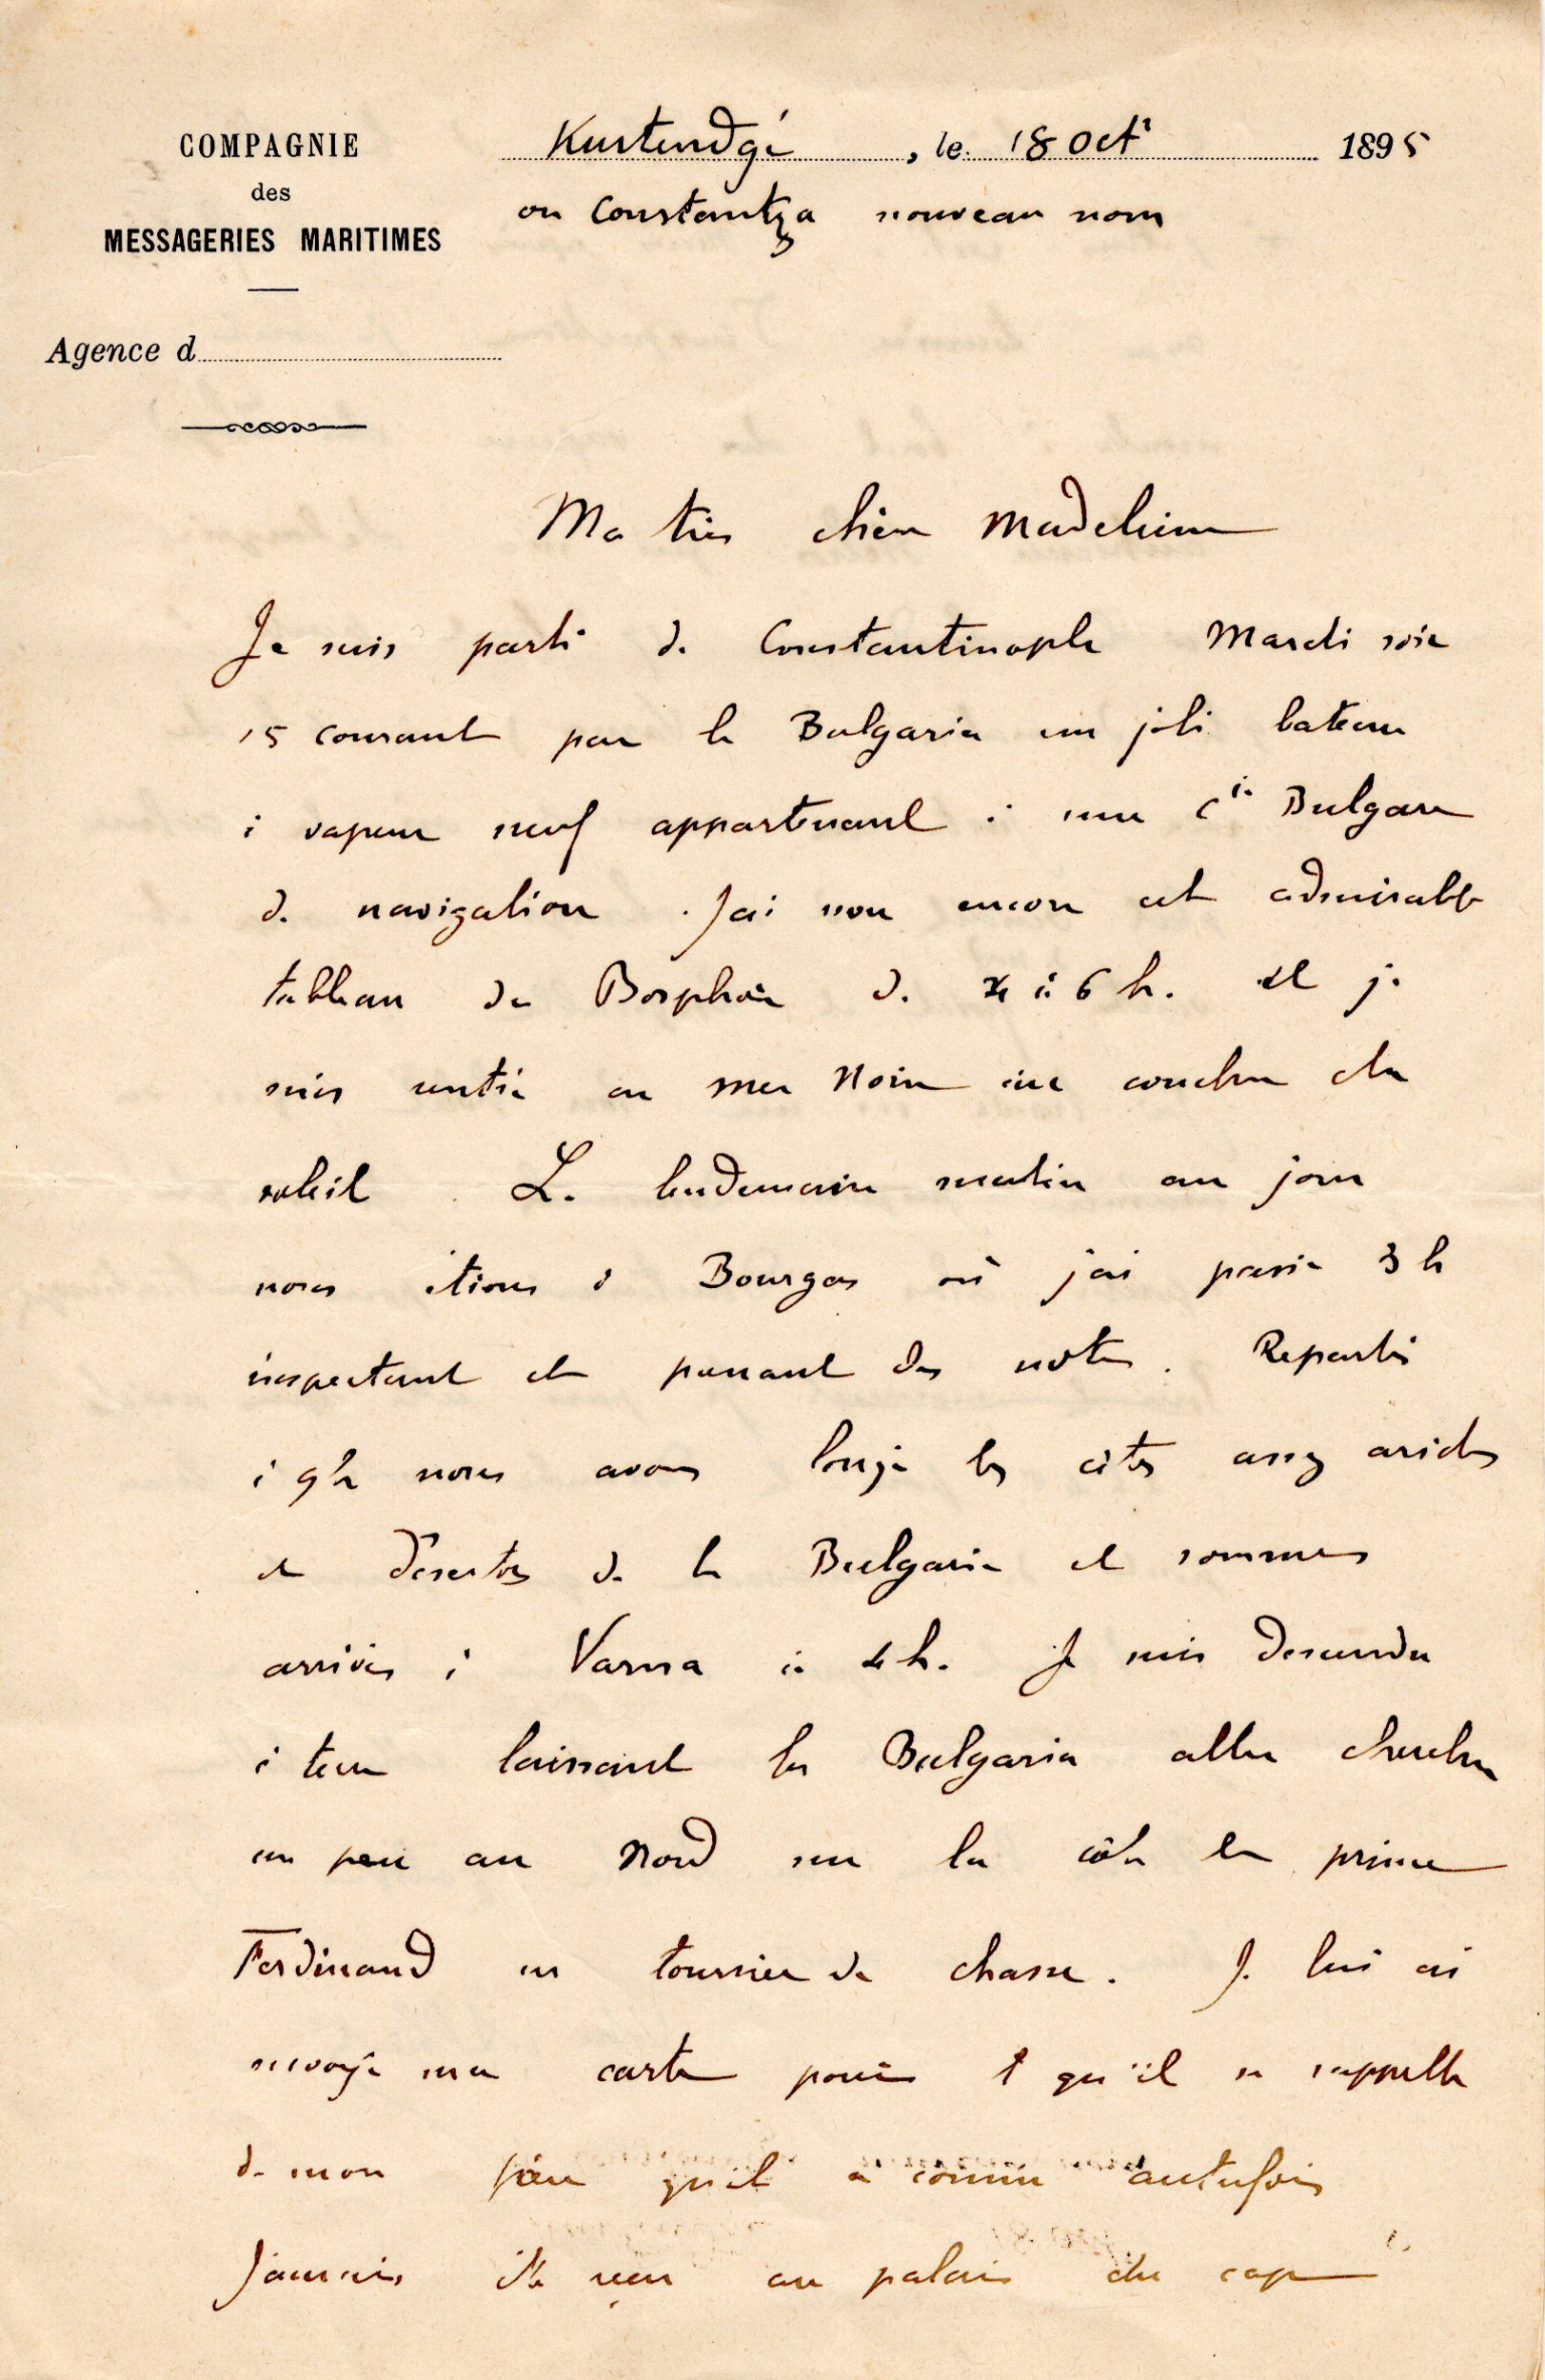 COMPAGNIE
des
MESSAGERIES MARITIMES
Agence d
Kustendgé, le 18 Oct 1895
ou Constantza nouveau nom
Ma très chère Madeleine
Je suis parti de Constantinople Mardi soir
15 courant par le Bulgaria un joli bateau
à vapeur neuf appartenant à une Cie Bulgare
de navigation. J'ai revu encore cet admirable
tableau du Bosphore de 4 à 6 h. et je
suis rentré en mer Noire au coucher du
soleil. Le lendemain matin au jour
nous étions à Bourgas où j'ai passé 3 h
inspectant et prenant des notes. Repartis
à 9h nous avons longé les côtes assez arides
et désertes de la Bulgarie et sommes
arrivés à Varna à 4h. Je suis descendu
à terre laissant le Bulgaria aller chercher
un peu au Nord sur la côte le prince
Ferdinand en tournée de chasse. Je lui ai
envoyé ma carte pour qu'il se rappelle
de mon père qu'il a connu autrefois
J'aurais été reçu au palais du cap